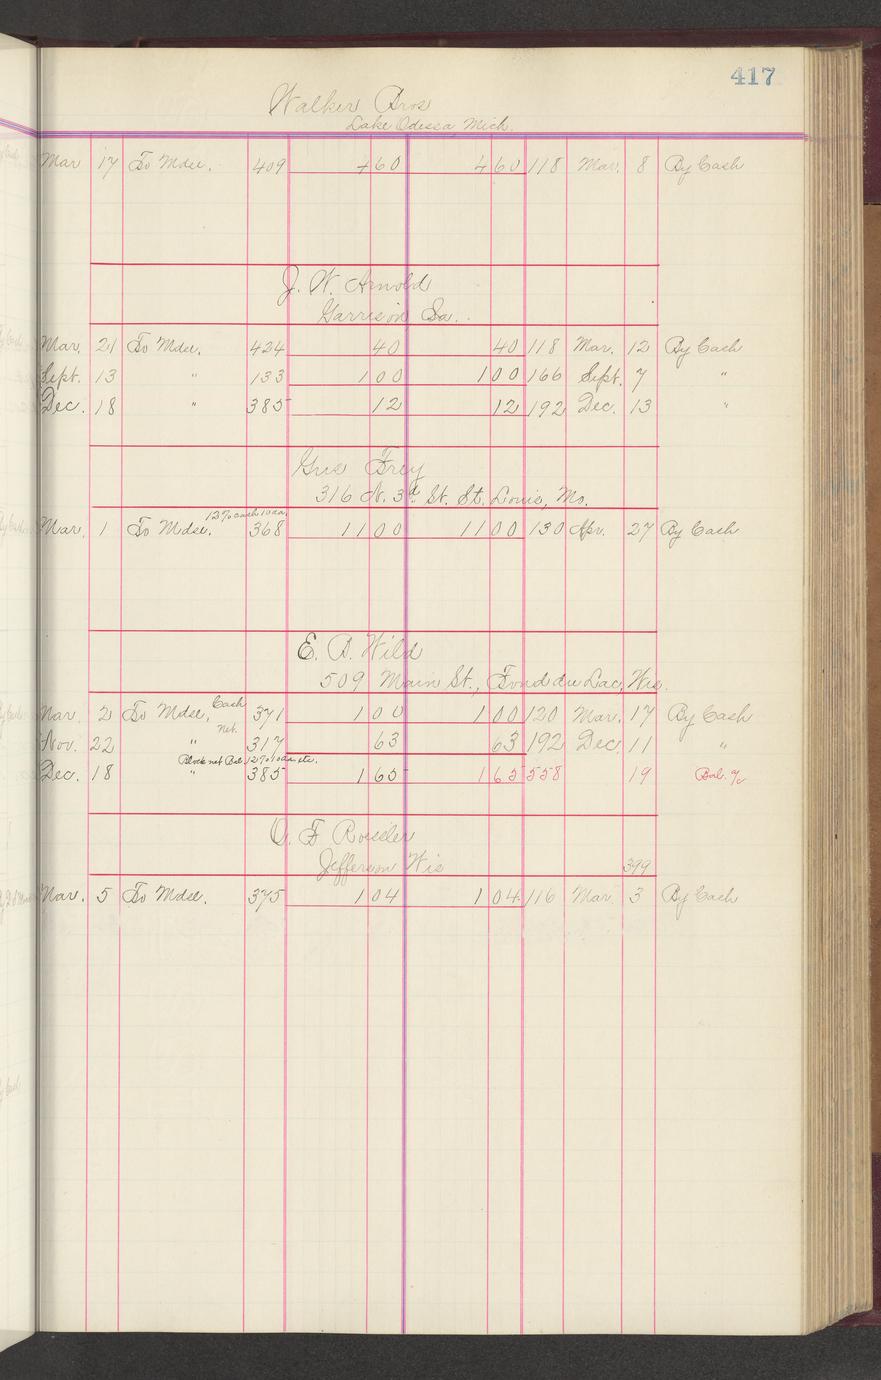 417
Walker Bros
Lake Odessa Mich.
Mar 17 To Mdse. 409 4 60 4 60 118 Mar. 8 By Cash
J. W. Arnold
Garrison
Mar. 21 To Mdse. 424 40 40 118 Mar. 12 By Cash
Sept. 13 " 133 1 00 1 00 166 Sept. 7 "
Dec. 18 " 385 12 12 192 Dec. 13 "
Gus Frey
316 N. 3d. St. St. Louis, Mo.
12% cash 10 da.
Mar. 1 To Mdse. 368 11 00 11 00 130 Apr. 27 By Cash
E. B. Wild
509 Main St., Fond du Lac, Wis.
Mar. 2 To Mdse. Cash 371 1 00 1 00 120 Mar. 17 By Cash
Net.
Nov. 22 " 317 63 63 192 Dec. 11 "
net Bal. 12% 10 da etc.
Dec. 18 " 385 1 65 1 65 558 19 Bal. %
O. F Roessler
Jefferson Wis
399
Mar. 5 To Mdse. 375 1 04 1 04 116 Mar. 3 By Cash